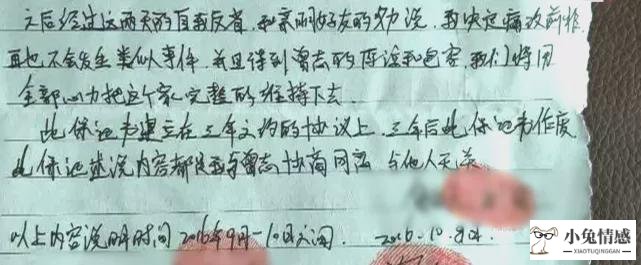 之后经过这两天的自我反省,和亲朋好友的劝说,我决定痛改前非
再也不会发生类似事件,并且得到曾志的原谅和包容,我们将用
全部心力把这个家完整的维持下去.
此保证书建立在三年之约的协议上,三年后此保证书作废
此保证述说内容都是我与曾志协商同意 与他人无关
以上内容说明时间2016年9月-10日之间. 2016.10.8日.
小兔情感
XIAOTUQINGGAN